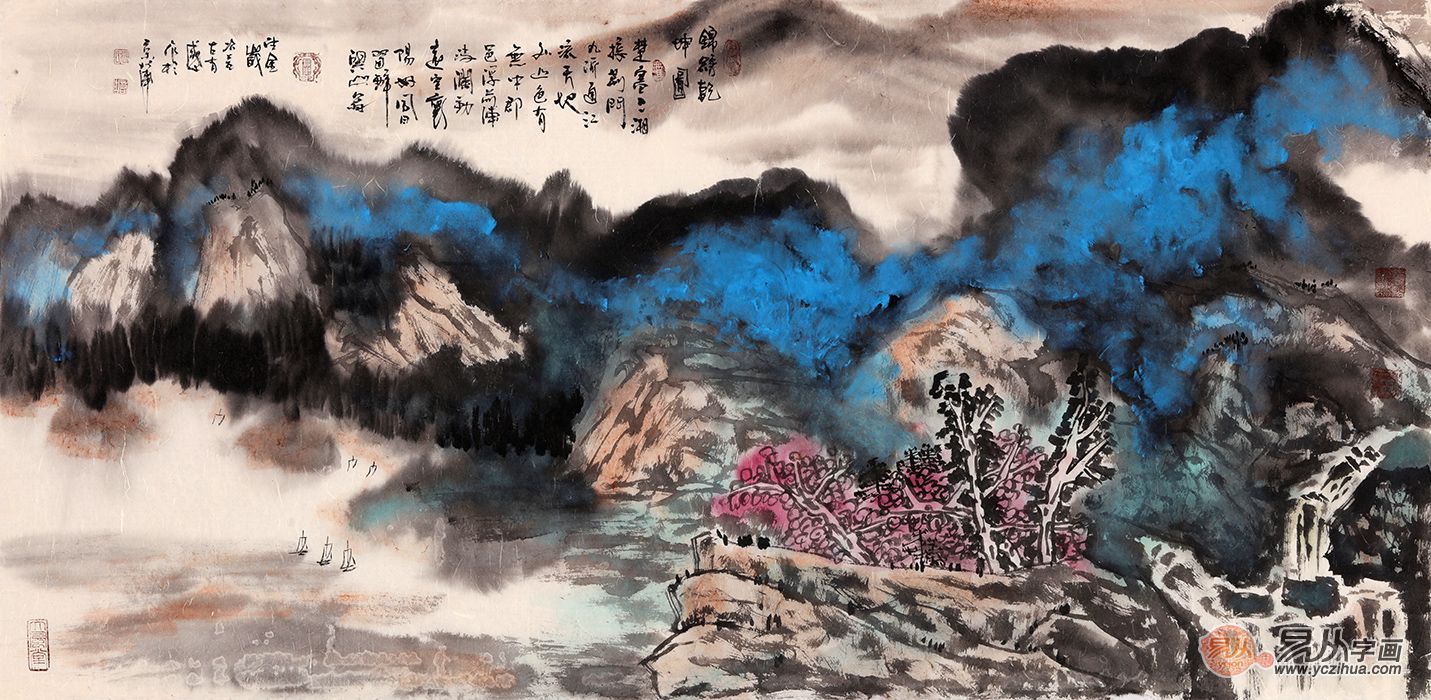 錦繡乾
坤圖
楚塞三湘
接荊門
九派通江
流天地
外山色有
無中郡
邑浮前浦
波瀾動
遠空襄
陽好風日
留醉
與山翁
作於
易从
易从学画
www.yczihua.com